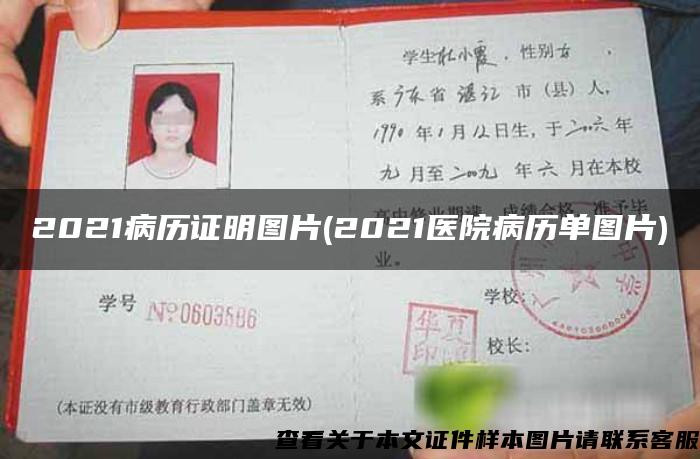 学生杜小霞，性别女，
系广东省湛江市（县）人，
1990年1月12日生，于二00六年
九月至二00九年六月在本校
高中修业期满，成绩合格，准予毕
2021病历证明图片(2021医院病历单图片)
业。
学号 №0603586
学校：
华夏
校长：
(本证没有市级教育行政部门盖章无效)
查看关于本文证件样本图片请联系客服